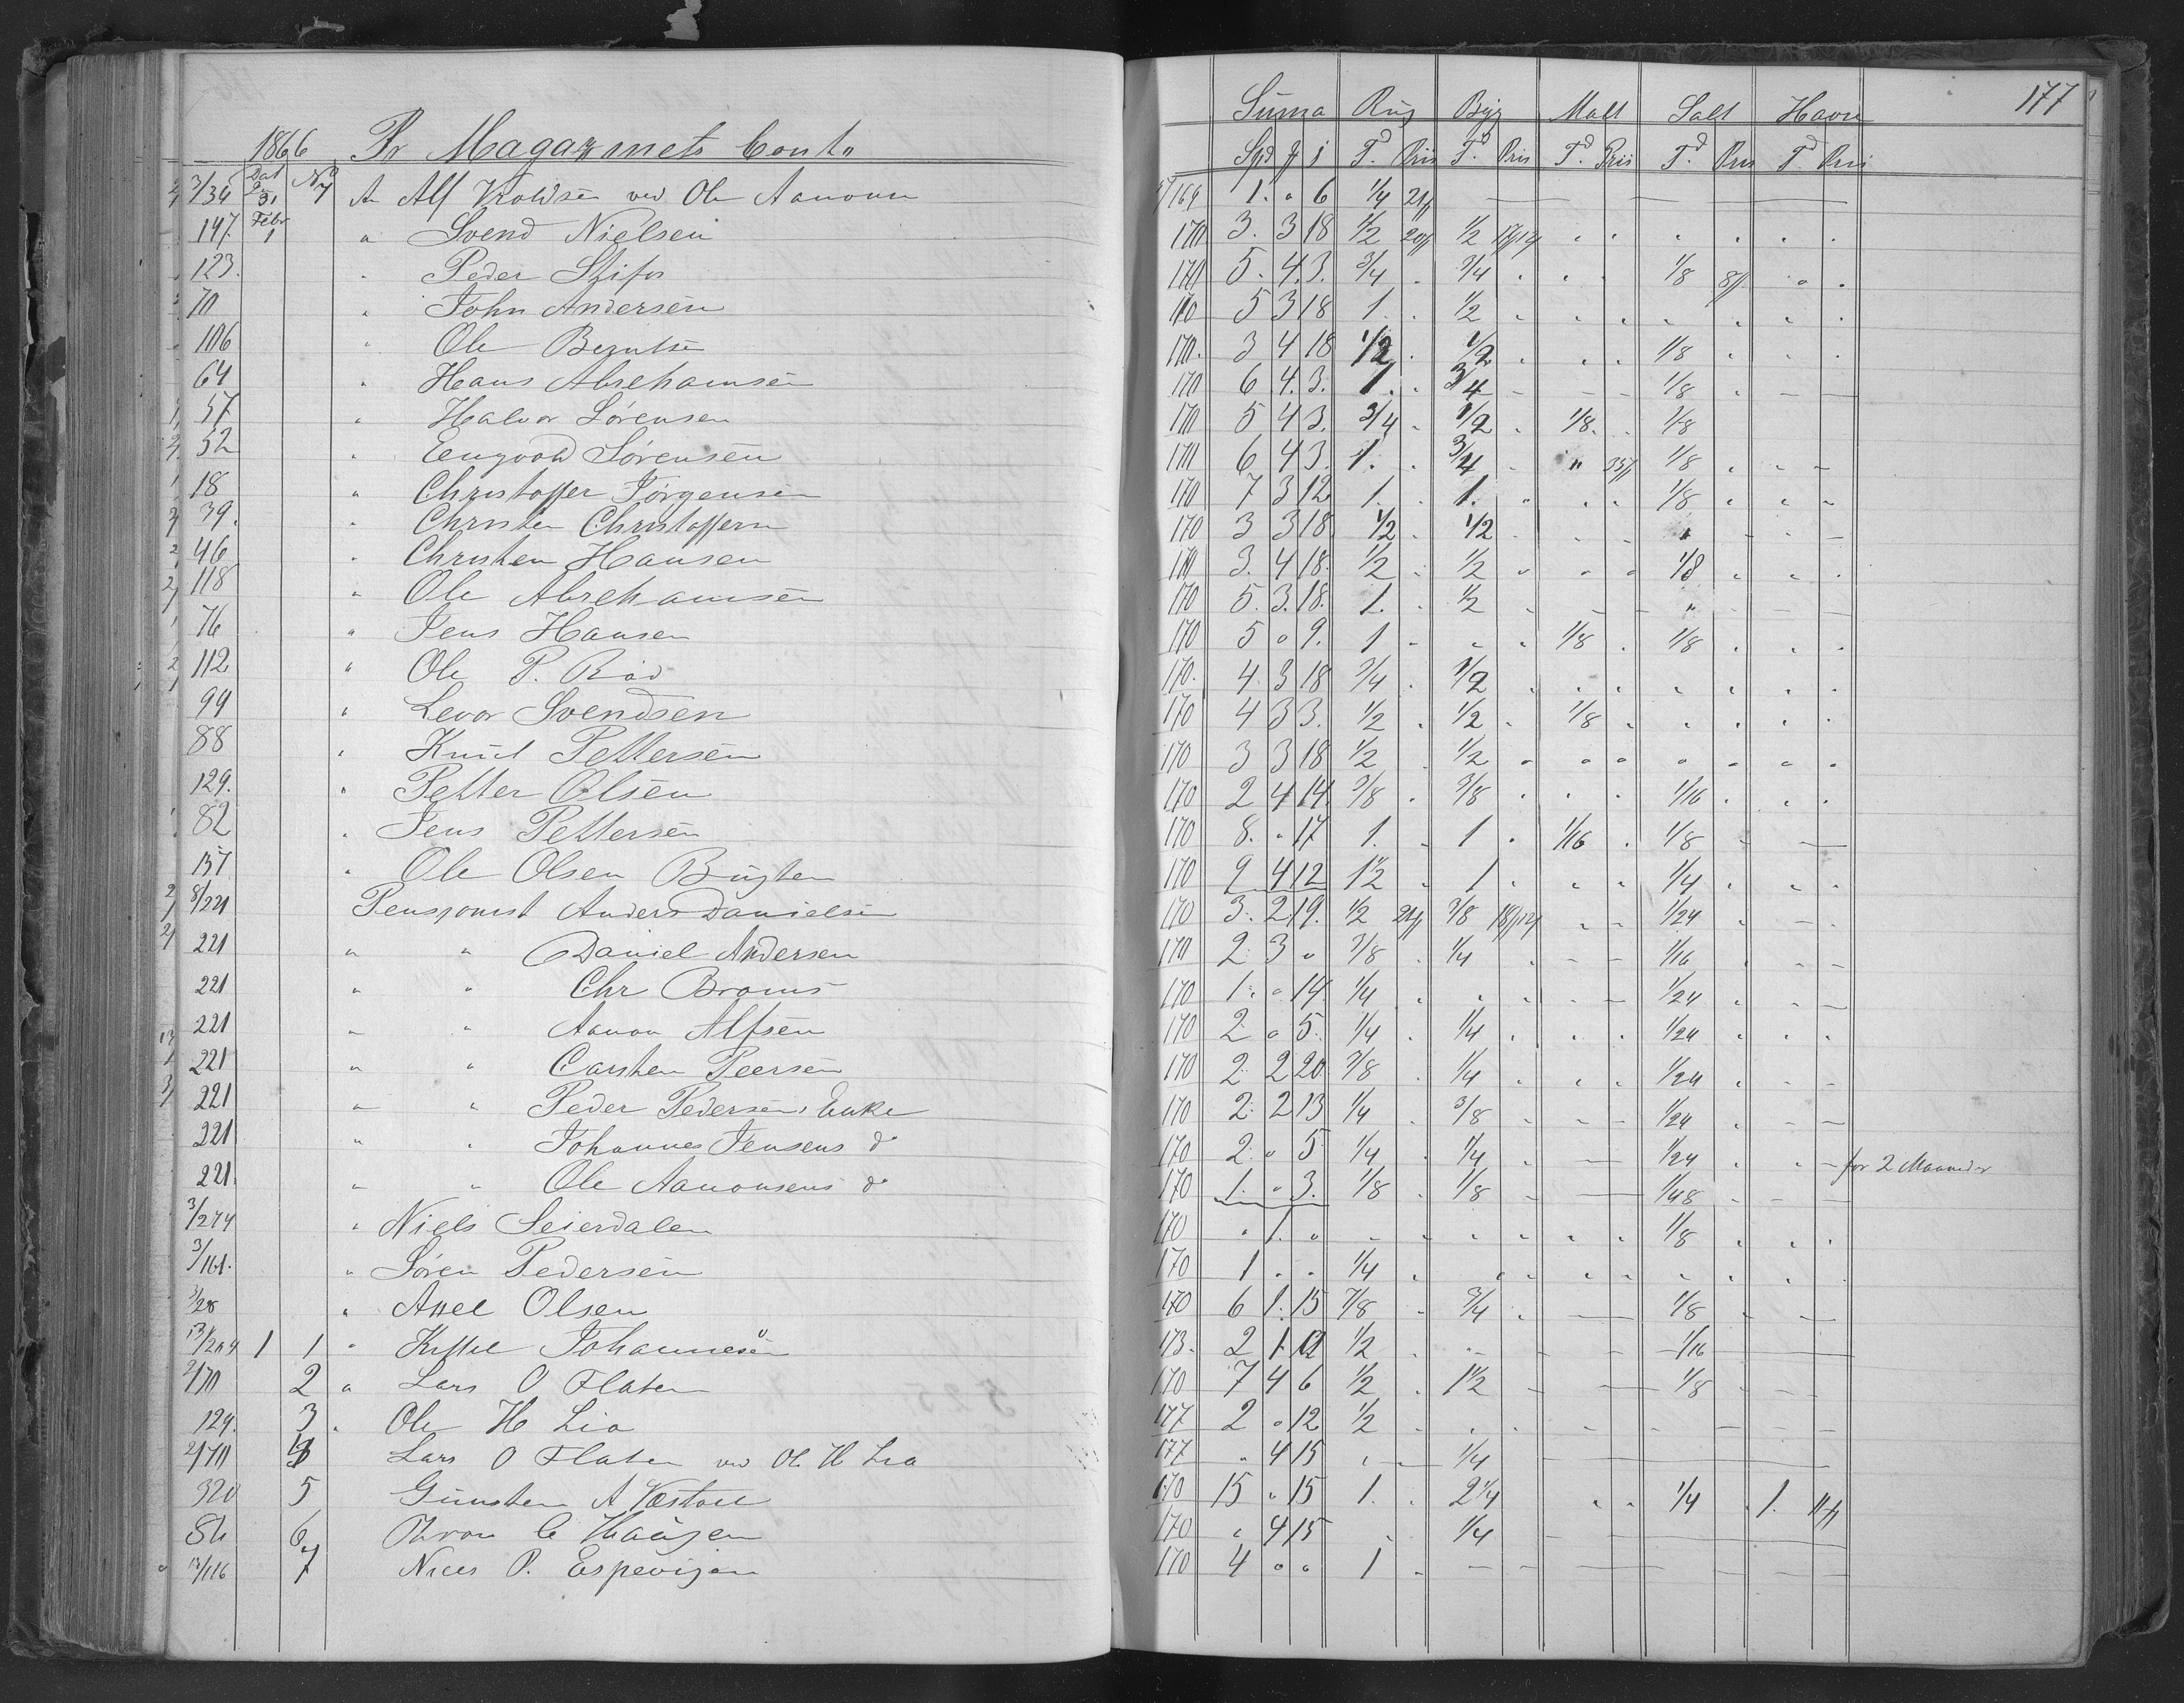 177
1866 Pr Magazinets Conto Suma Rug Byg Malt Salt Havre
Dat No Spd T. Pris Td Pris Td Pris Td Pris Td Pris
3/34 31 7 A Alf Knoldsen ved Ole Aanonsen 169 1. " 6 1/4 21
147. Febr 1 " Svend Nielsen 170 3. 3 18 1/2 20 1/2
123. " Peder 170 5. 4. 3. 3/4 3/4 1/8
70 " John Andersen 170 5 3 18 1. 1/2
106 " Ole Berntsen 170. 3 4 18 1/2 1/2 1/8
64 " Hans Abrehamsen 170 6 4. 3. 1. 3/4 1/8
57 " Halvor Sørensen 170 5 4 3. 3/4 1/2 1/8 1/8
52 " Sørensen 170 6 4 3. 1. 3/4 " 1/8
18 " Christoffer Jørgensen 170 7 3 12 1. 1. 1/8
39. " Christen Christoffersen 170 3 3 18 1/2 1/2
46 " Christen Hansen 170 3. 4 18. 1/2 1/2 1/8
118 " Ole Abrehamsen 170 5. 3. 18. 1. 1/2
76 " Jens Hansen 170 5 " 9. 1 1/8 1/8
112 " Ole P. Riød 170. 4 3 18 3/4 1/2
99 " Levor Svendsen 170 4 3 3. 1/2 1/2 1/8
88 " Knud Pettersen 170 3 3 18 1/2 1/2
129. " Petter Olsen 170 2 4 14. 3/8 3/8 1/16
82 " Jens Pettersen 170 8. " 17 1. 1 1/16 1/8
137 " Ole Olsen Bugten 170 9 4 12 1 1/2 1 1/4
8/221 Pensjonist Anders Danielsen 170 3. 2 19. 1/2 21 3/8 1/24
221 " " Daniel Andersen 170 2 3 " 3/8 1/4 1/16
221 " " Chr Broms 170 1. " 14 1/4 1/24
221 " " Aanon Alfsen 170 2 " 5. 1/4 1/4 1/24
221 " " Carsten Peersen 170 2 2 20 3/8 1/4 1/24
221 " " Peder Pedersens Enke 170 2. 2 13 1/4 3/8 1/24
221 " " Johannes Jensens do 170 2. " 5 1/4 1/4 1/24
221. " " Ole Aanonsens do 170 1. " 3. 1/8 1/8 1/48 for 2 Maaneder
3/274 " Niels Seierdalen 170 " 1. " 1/8
3/161. " Søren Pedersen 170 1 . . 1/4
3/28 " Axel Olsen 170 6 1. 15 7/8 3/4 1/8
13/264 1 1 " Kittel Johannesen 173. 2 1 1/2 1/16
2/70 2 " Lars O Flaten 170 7 4 6 1/2 1 1/2 1/8
129. 3 " Ole H Lia 177 2 " 12 1/2
2/70 Lars O Flaten ved Ol H Lia 177 " 4 15 1/4
320 5 Gunsten A 170 15 " 15 1. 2 1/4 1/4 1.
86 6 Thron C Haugen 170 " 4 15 1/4
13/116 7 Niels P. Espevigen 170 4 " " 1